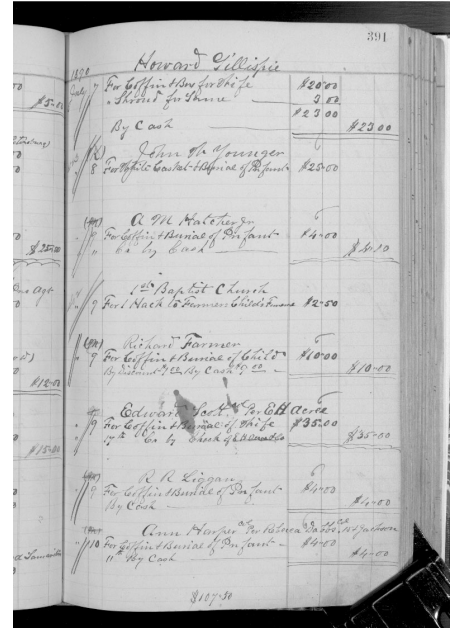 391
1890 Howard Gillispie
July 7 For Coffin & Box for Wife $20=00
" Shroud for Same 3 00
$23 00
By Cash $23 00
John W Younger
8 For White Casket & Burial of Infant $25=00
A M Hatcher Jr
For Coffin & Burial of Infant $4=00
" Cr by Cash
1st Baptist Church
9 For 1 Hack to Farmer Child's $2=50
Richard Farmer
9 For Coffin & Burial of Child $10=00
By Discount By Cash $10=00
Edward Scott Per E H Acree
9 For Coffin & Burial of Wife $35=00
17th Cr by Check of $35=00
R R Liggan
9 For Coffin & Burial of Infant $4=00
By Cash $4=00
Ann Harper Jackson
10 For Coffin & Burial of Infant $4=00
11 By Cash $4=00
$107=50
$5=00
$25=00
Agt
$12=00
$15=00